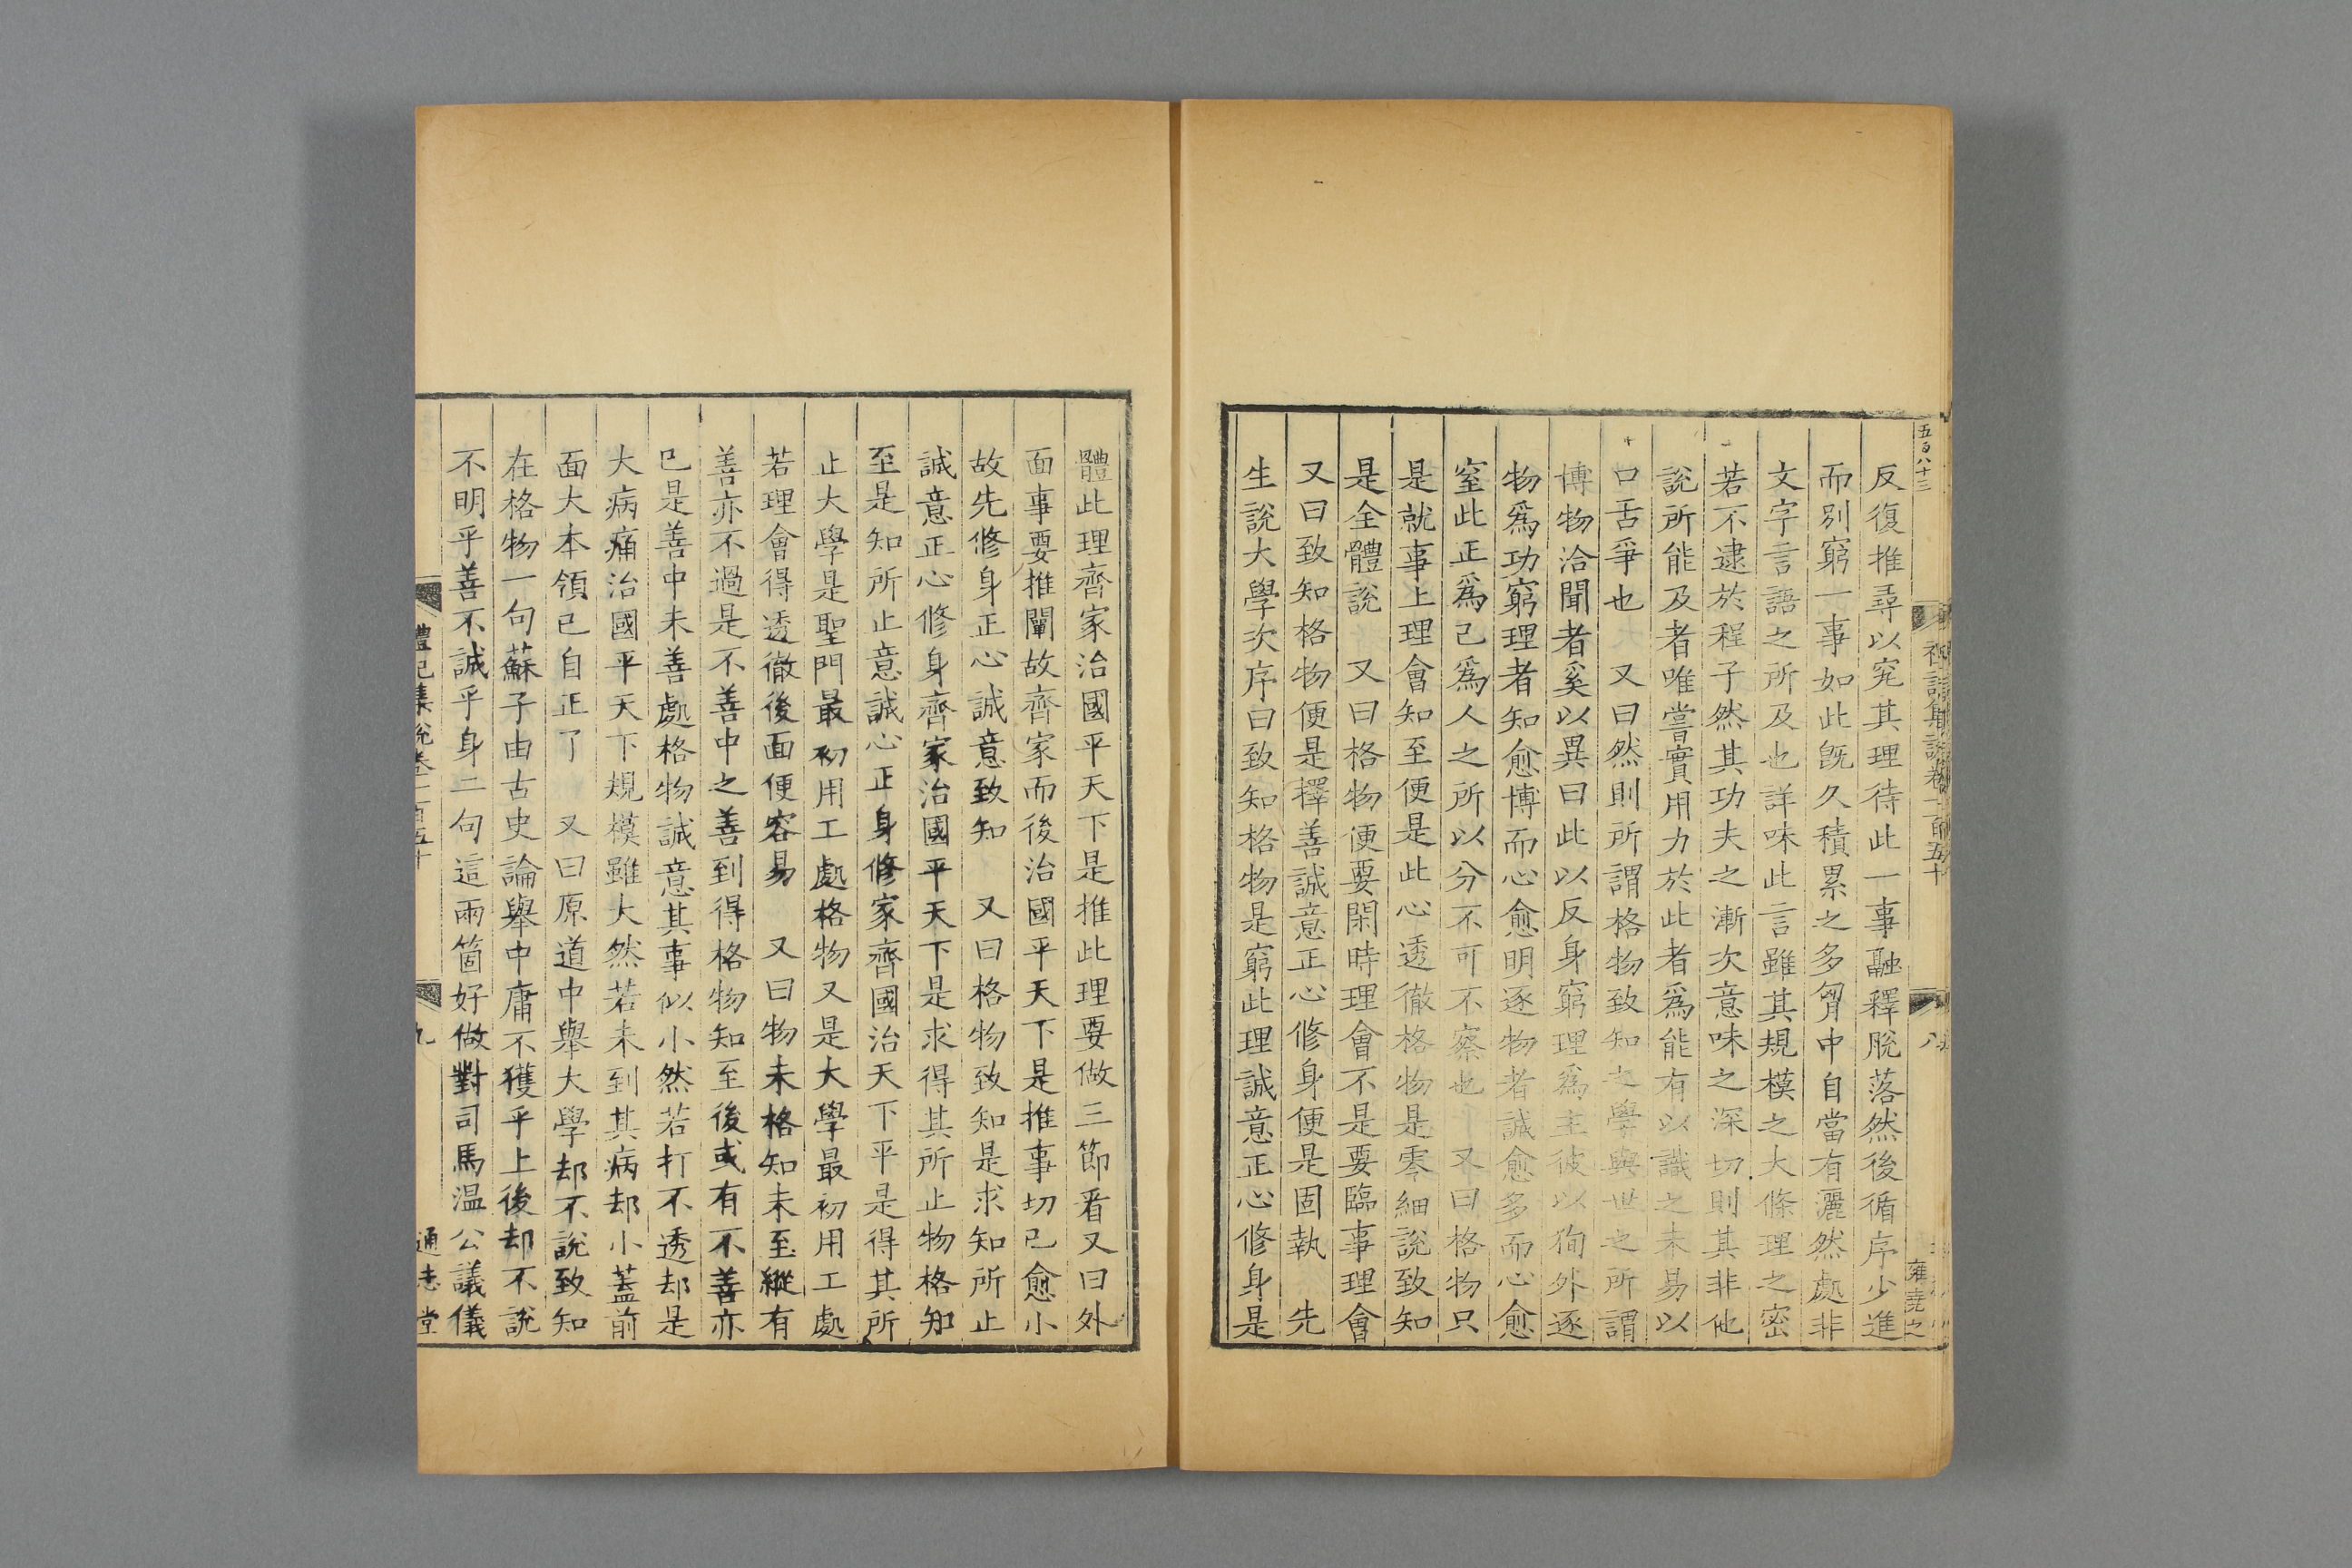 五百八十三
禮記集說卷一百五十
八
雍堯之
反復推尋以究其理待此一事融釋脫落然後循序少進
而別窮一事如此旣久積累之多胷中自當有灑然處非
文字言語之所及也詳味此言雖其規模之大條理之密
若不逮於程子然其功夫之漸次意味之深切則其非他
說所能及者唯嘗實用力於此者爲能有以識之未易以
口舌爭也　又曰然則所謂格物致知之學與世之所謂
博物洽聞者奚以異曰此以反身窮理爲主彼以徇外逐
物爲功窮理者知愈博而心愈明逐物者誠愈多而心愈
窒此正爲己爲人之所以分不可不察也　又曰格物只
是就事上理會知至便是此心透徹格物是零細說致知
是全體說　又曰格物便要閑時理會不是要臨事理會
又曰致知格物便是擇善誠意正心修身便是固執　先
生說大學次序曰致知格物是窮此理誠意正心修身是
體此理齊家治國平天下是推此理要做三節看又曰外
面事要推闡故齊家而後治國平天下是推事切己愈小
故先修身正心誠意致知　又曰格物致知是求知所止
誠意正心修身齊家治國平天下是求得其所止物格知
至是知所止意誠心正身修家齊國治天下平是得其所
止大學是聖門最初用工處格物又是大學最初用工處
若理會得透徹後面便容易　又曰物未格知未至縱有
善亦不過是不善中之善到得格物知至後或有不善亦
已是善中未善處格物誠意其事似小然若打不透却是
大病痛治國平天下規模雖大然若未到其病却小蓋前
面大本領已自正了　又曰原道中舉大學却不說致知
在格物一句蘇子由古史論舉中庸不獲乎上後却不說
不明乎善不誠乎身二句這兩箇好做對司馬溫公議儀
禮記集說卷一百五十
九
通志堂